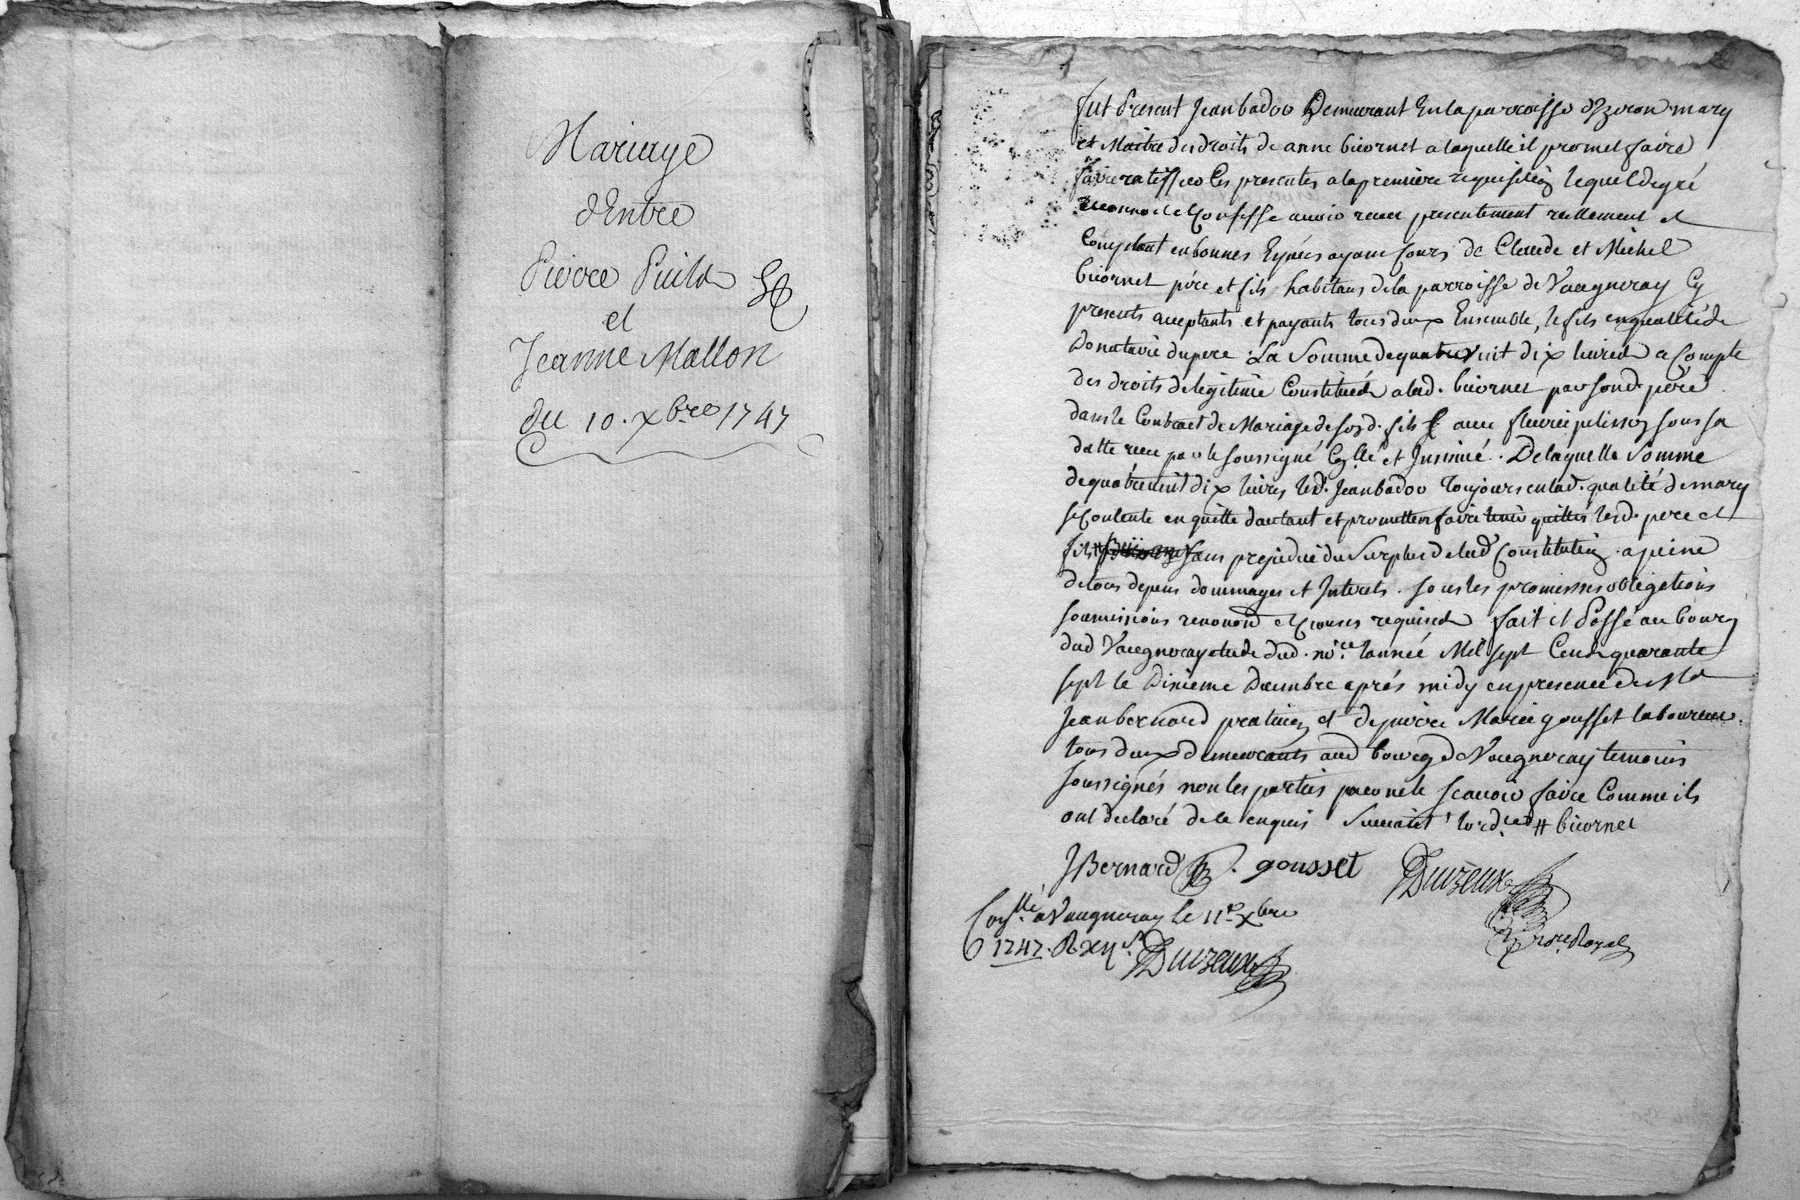 Mariage
d'Entre
Pierre Puild
et
Jeanne Mallon
du 10. xbre 1747
fut Present Jean badoo Demeurant En la parroisse d'Yzeron mary
et Maitre des droits de anne bicornet a laquelle il promet faire
faire ratiffieo les presentes a la premiere requisition lequel de gré
reconnoit et Confesse avoir receu presentement reellement et
Comptant en bonnes Espéces ayant Cours de Claude et Michel
bicornet pére et fils habitans de la parroisse de Vaugneray Cy
presents acceptants et payants tous deux Ensemble, le fils en qualité de
Donataire du pere. La Somme de quatre vint dix livres a Compte
des droits de legitime Constitués a lad. bicornet par sond. pére
dans le Contract de Mariage de sond. fils avec fleurie pelisson sous sa
datte receu par le soussigné Con.llé et Insinué. De laquelle Somme
de quatrevint dix livres led. Jean badoo toujours en lad. qualité de mary
se Contente en quitte d'autant et promet en faire tenir quittes lesd. pere et
fils # sans prejudice du Surplus de lad. Constitution. a peine
de tous depens dommages et Interets. sous les promesses obligations
soumissions renonon et Clauses requises fait et Passé au bourg
dud Vaugneray etude dud. no.re l'année Mil sept Cents quarante
sept le Dixieme Decembre aprés midy en presence de Me
Jean bernard praticien et de pierre Marie gousset laboureur
tous deux demeurants aud bourg de Vaugneray temoins
soussignés non les parties pour ne le scavoir faire Comme ils
ont declaré de ce enquis Suivant l'ord.ce # bicornet
JBernard gousset Duizeux
Con.llé a Vaugneray le 11e xbre
1747. R xii s. Duizeux
no.re Royal